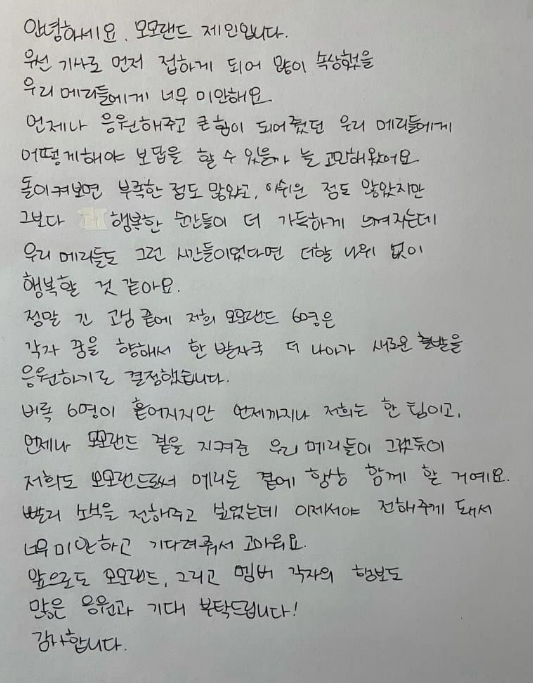 안녕하세요, 모모랜드 제인입니다.
우선 기사로 먼저 접하게 되어 많이 속상했을
우리 메리들에게 너무 미안해요
언제나 응원해주고 큰 힘이 되어줬던 우리 메리들에게
어떻게해야 보답을 할 수 있을까 늘 고민해왔어요
돌이켜보면 부족한 점도 많았고, 아쉬운 점도 많았지만
그보다 행복한 순간들이 더 가득하게 느껴지는데
우리 메리들도 그런 시간들이었다면 더할 나위 없이
행복할 것 같아요.
정말 긴 고심 끝에 저희 모모랜드 6명은
각자 꿈을 향해서 한 발자국 더 나아가 새로운 출발을
응원하기로 결정했습니다.
비록 6명이 흩어지지만 언제까지나 저희는 한 팀이고,
언제나 모모랜드 곁을 지켜준 우리 메리들이 그랬듯이
저희도 모모랜드로써 메리들 곁에 항상 함께 할 거예요.
빨리 소식을 전해주고 싶었는데 이제서야 전해주게 돼서
너무 미안하고 기다려줘서 고마워요.
앞으로도 모모랜드, 그리고 멤버 각자의 행보도
많은 응원과 기대 부탁드립니다!
감사합니다.